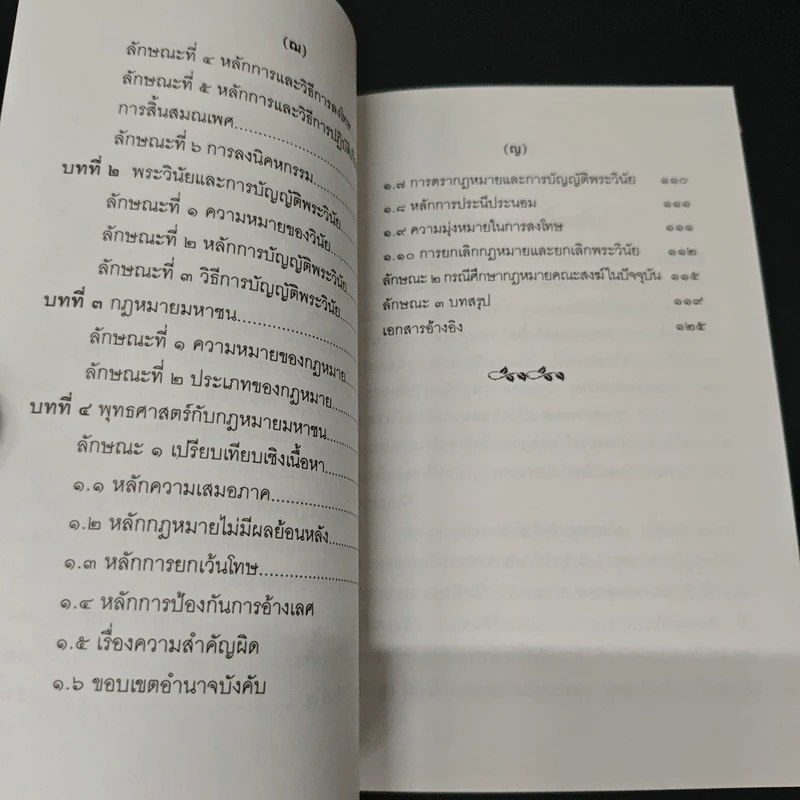 (ฌ)
ลักษณะที่ ๔ หลักการและวิธีการลงโทษ
ลักษณะที่ ๕ หลักการและวิธีการปฏิบัติ
การสิ้นสมณเพศ......
ลักษณะที่ ๖ การลงนิคหกรรม......
บทที่ ๒ พระวินัยและการบัญญัติพระวินัย
ลักษณะที่ ๑ ความหมายของวินัย......
ลักษณะที่ ๒ หลักการบัญญัติพระวินัย
ลักษณะที่ ๓ วิธีการบัญญัติพระวินัย......
บทที่ ๓ กฎหมายมหาชน......
ลักษณะที่ ๑ ความหมายของกฎหมาย......
ลักษณะที่ ๒ ประเภทของกฎหมาย......
บทที่ ๔ พุทธศาสตร์กับกฎหมายมหาชน......
ลักษณะ ๑ เปรียบเทียบเชิงเนื้อหา......
๑.๑ หลักความเสมอภาค......
๑.๒ หลักกฎหมายไม่มีผลย้อนหลัง......
๑.๓ หลักการยกเว้นโทษ......
๑.๔ หลักการป้องกันการอ้างเลศ
๑.๕ เรื่องความสำคัญผิด
๑.๖ ขอบเขตอำนาจบังคับ
(ญ)
๑.๗ การตรากฎหมายและการบัญญัติพระวินัย ๑๑๐
๑.๘ หลักการประนีประนอม ๑๑๑
๑.๙ ความมุ่งหมายในการลงโทษ ๑๑๑
๑.๑๐ การยกเลิกกฎหมายและยกเลิกพระวินัย ๑๑๒
ลักษณะ ๒ กรณีศึกษากฎหมายคณะสงฆ์ในปัจจุบัน ๑๑๕
ลักษณะ ๓ บทสรุป ๑๑๙
เอกสารอ้างอิง ๑๒๕